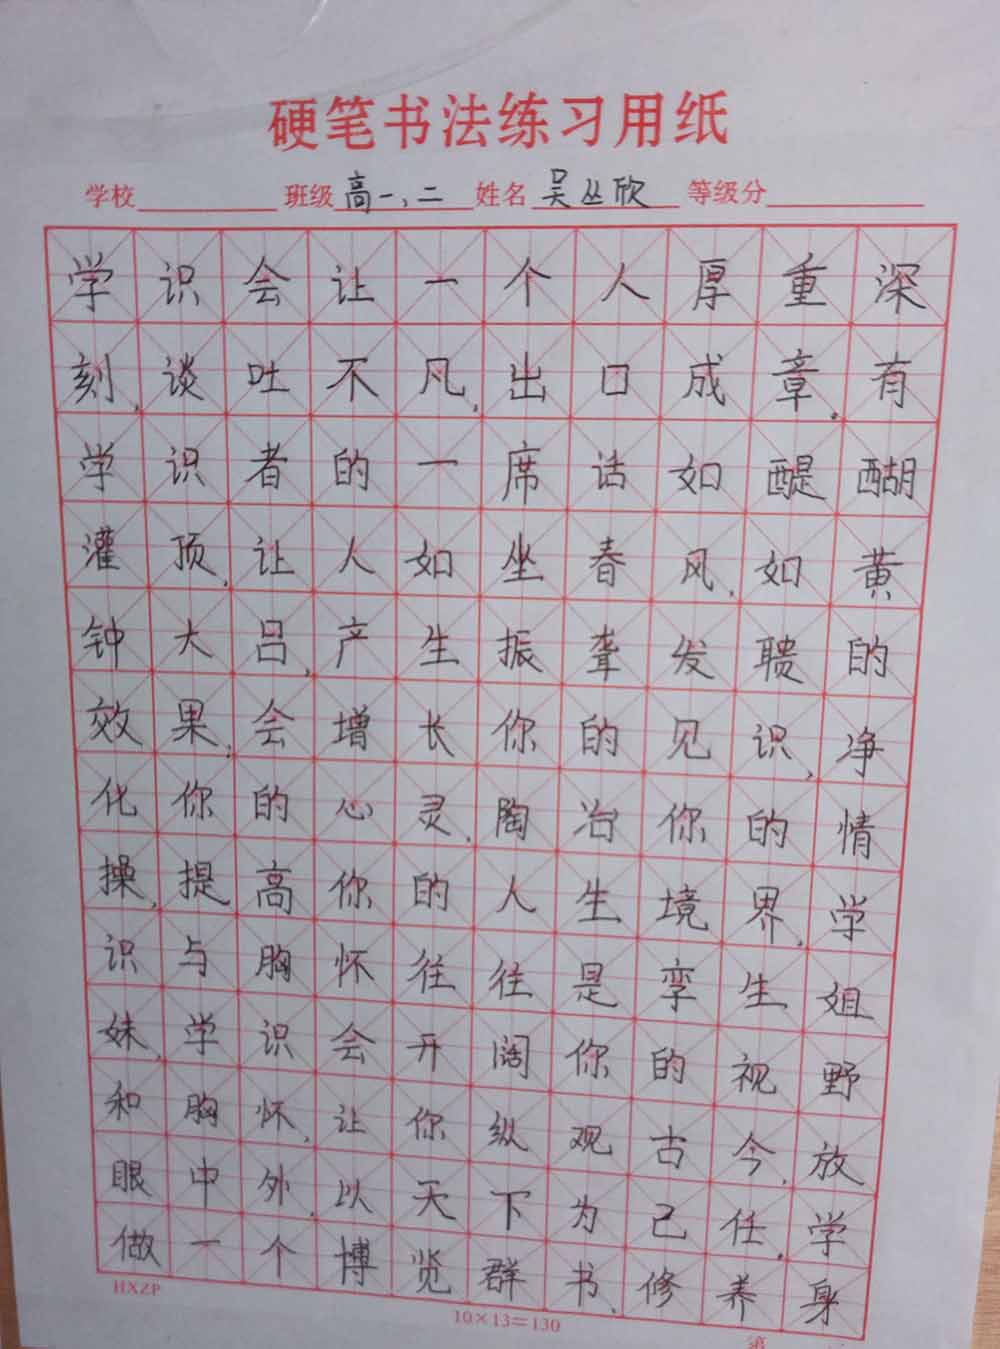 硬笔书法练习用纸
学校 班级 高一、二 姓名 吴丛欣 等级分
学识会让一个人厚重深
刻,谈吐不凡,出口成章。有
学识者的一席话如醍醐
灌顶,让人如坐春风,如黄
钟大吕,产生振聋发聩的
效果,会增长你的见识,净
化你的心灵,陶冶你的情
操,提高你的人生境界,学
识与胸怀往往是孪生姐
妹,学识会开阔你的视野
和胸怀,让你纵观古今,放
眼中外,以天下为己任,学
做一个博览群书、修养身
HXZP
10×13=130
第